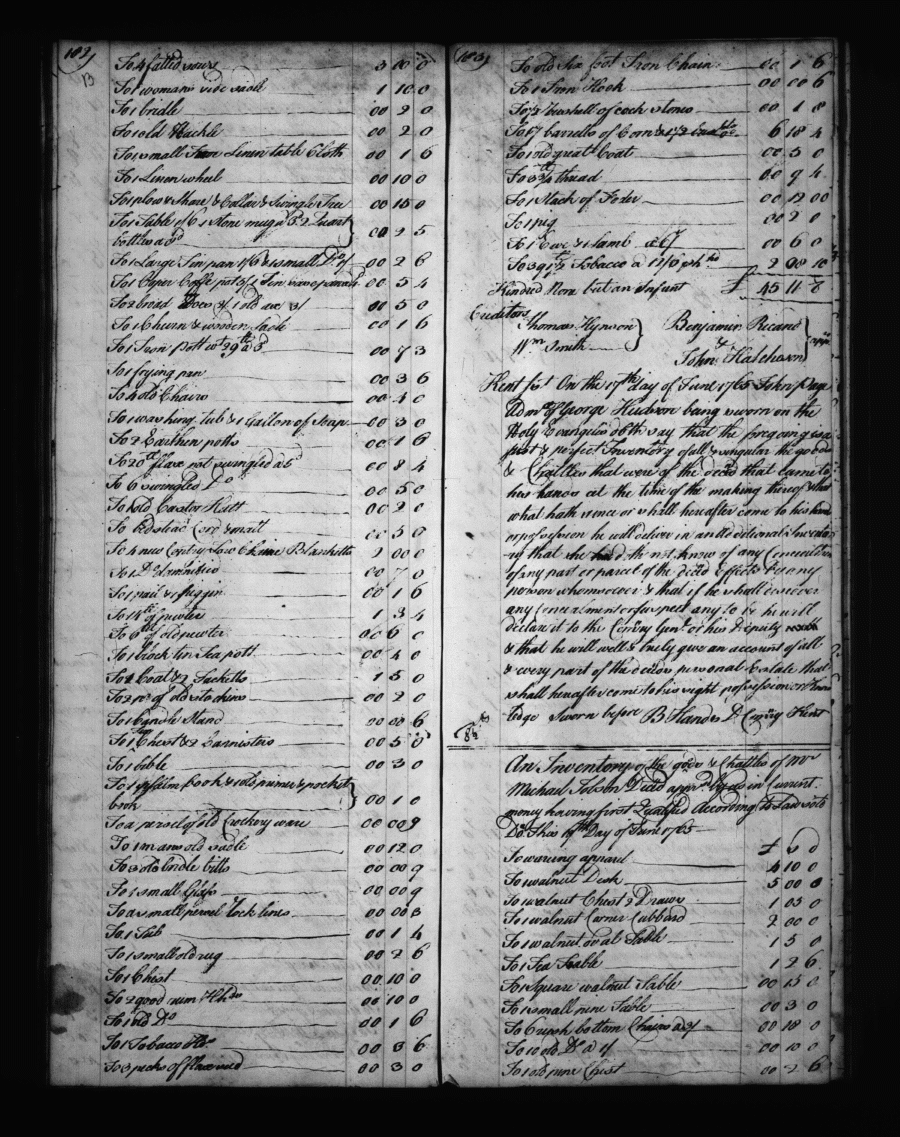 182
B
To 4 fatted sows 3 10 0
To 1 womans side sadle 1 10 0
To 1 bridle 00 2 0
To 1 old Hackle 00 2 0
To 1 small Linen table Cloth 00 1 6
To 1 Linen wheel 00 10 0
To 1 plow & Share & Collar & Swingle Tree 00 15 0
To 1 Table 1 Stone mug 2 Quart
bottles a 3d 00 2 5
To 1 Large Tin pan 1/6 & 1 small Do 1/ 00 2 6
To 1 Coper Coffe pot 1 Tin 00 5 4
To 2 broad hoes 1 old axe 3/ 00 5 0
To 1 Churn & wooden 00 1 6
To 1 Iron Pott wt 29 lb a 3 00 7 3
To 1 frying pan 00 3 6
To 4 old Chairs 00 4 0
To 1 washing tub & 1 Gallon of Soap 00 3 0
To 2 Earthen potts 00 1 6
To 20 lb flax not swingled a 5d 00 8 4
To 6 swingled Do 00 5 0
To 1 old Castor Hatt 00 2 0
To 1 bedstead Cord & matt 00 5 0
To 4 new Contry Blanketts 2 00 0
To 1 Do 00 7 0
To 1 pail & 1 piggin 00 1 6
To 14 lb of pewter 1 3 4
To 6 lb of old pewter 00 6 0
To 1 block tin Tea pott 00 4 0
To 1 Coat & 2 Jacketts 1 5 0
To 2 pr of old stockins 00 2 0
To 1 Candle Stand 00 00 6
To 1 Chest & 2 Cannisters 00 5 0
To 1 bible 00 3 0
To 1 psalm book & 1 old primer & pocket
book 00 1 0
To a persel of old Crockery ware 00 00 9
To 1 mans old sadle 00 12 0
To 3 old bridle bitts 00 00 9
To 1 small Glass 00 00 9
To a small persel lock lines 00 00 3
To 1 Tub 00 1 4
To 1 small old rug 00 2 6
To 1 Chest 00 10 0
To 2 good rum Hhds 00 10 0
To 1 old Do 00 1 6
To 1 Tobacco 00 3 6
To 3 pecks of flaxseed 00 3 0
183
To old Six foot Iron Chain 00 1 6
To 1 Iron Hook 00 00 6
To 1/2 bushell of cock stones 00 1 8
To 17 barrells of Corn 6 18 4
To 1 old great Coat 00 5 0
To 3 3/4 lb thread 00 9 4
To 1 Stack of Foder 00 12 00
To 1 pig 00 2 0
To 1 Ewe & 1 lamb a 6/ 00 6 0
To 391 lb Tobacco a 12/6 2 08 10
Kindred None but an Infant £ 45 11 8
Creditors
Thomas Hynson
Wm Smith
Benjamin Ricaud
&
John Hatcheson
appr
Kent sst On the 17th day of June 1765 John Page
Admr of George Hudson being sworn on the
Holy Evangelis doth say that the foregoing is a
just & perfect Inventory of all & singular the goods
& Chattles that were of the decd that came to
his hands at the time of the making thereof & that
what hath since or shall hereafter come to his hands
or possession he will deliver in an additional Invento
ry that he doth not know of any Concealment
of any part or parcel of the decd Effects by any
person whomsoever & that if he shall discover
any Concealment or suspect any to be he will
declare it to the Comry Genl or his Deputy
& that he will well & truly give an account of all
& every part of the deceas personal Estate that
shall hereafter come to his right possession or Know
ledge Sworn before B Hands D Comry Kent
An Inventory of the goods & Chattles of Mr
Michael Jobson Decd apprd by us in Current
money having first Qualified According to Law
Do this 19th Day of June 1765
£ s d
To wearing apparel 4 10 0
To 1 walnut Desk 5 00 0
To 1 walnut Chest & Draws 1 05 0
To 1 walnut Corner Cubbard 2 00 0
To 1 walnut oval Table 1 5 0
To 1 Tea Table 1 2 6
To 1 Square walnut Table 00 15 0
To 1 small pine Table 00 3 0
To 6 rush bottom Chairs a 3/ 00 18 0
To 10 old Do a 1/ 00 10 0
To 1 old pine Chest 00 2 6